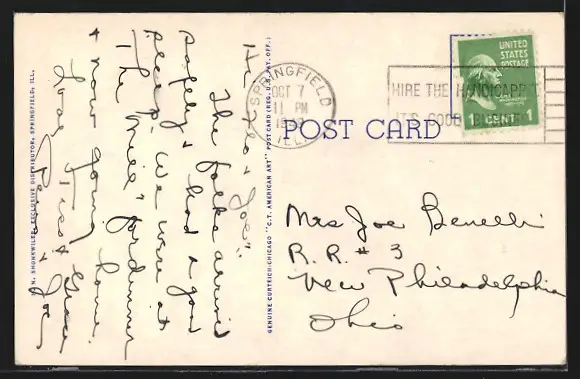 UNITED
STATES
POSTAGE
1 CENT 1
SPRINGFIELD
OCT 7
11 PM
ILL.
HIRE THE HANDICAPPED
IT'S GOOD BUSINESS
POST CARD
Mrs Joe Benelli
R.R. # 3
New Philadelphia
Ohio
Hi Flo & Joe:
The folks arrived
safely & had a good
sleep. We were at
The "Mill" for dinner
& now going home.
Love
Rose & Joe
GENUINE CURTEICH-CHICAGO "C.T. AMERICAN ART" POST CARD (REG. U.S. PAT. OFF.)
N. SHUNKWILER, EXCLUSIVE DISTRIBUTOR, SPRINGFIELD, ILL.